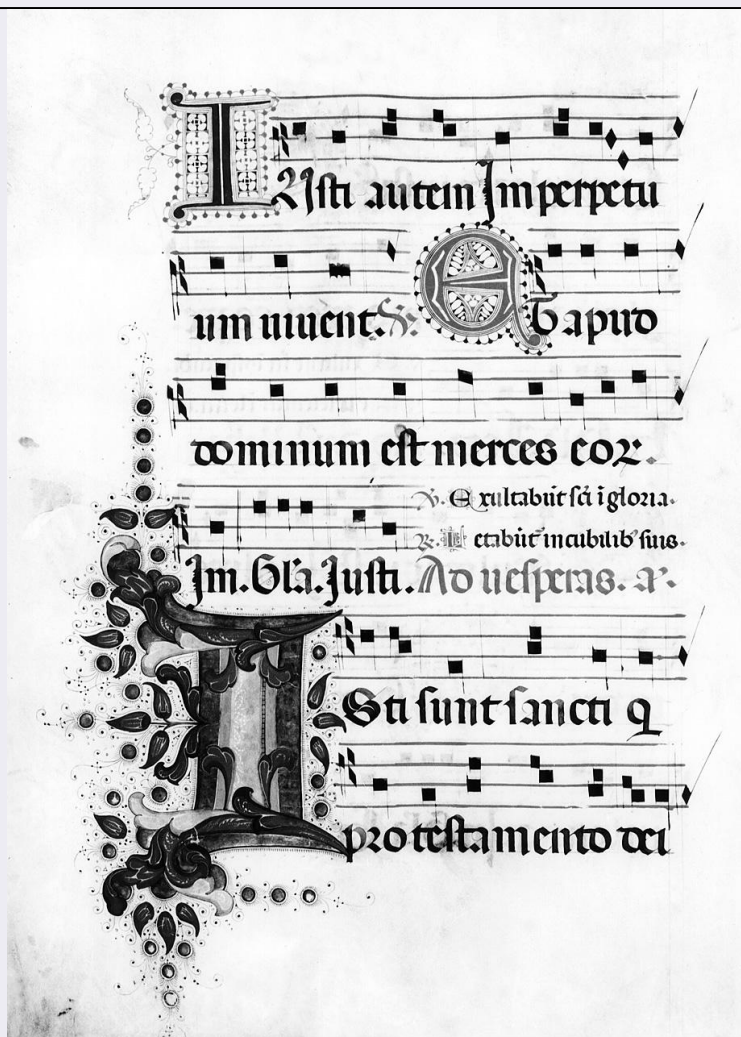 IUsti autem Jmperpetu
um uiuent. ℣. Et apud
dominum est merces eoꝝ.
℣. Exultabūt sc̄i ī gloria.
℟. Letabūt̉ in cubilibꝰ suis.
Jm. Gl'a. Justi. Ad uesperas. a'.
ISti sunt sancti q
pro testamento dei